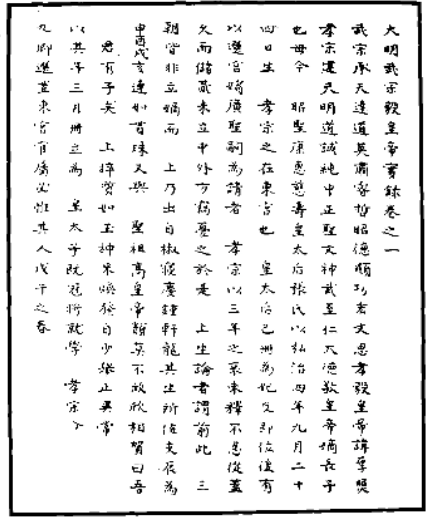 大明武宗毅皇帝實錄卷之一
武宗承天達道英肅睿哲昭德顯功弘文思孝毅皇帝諱厚照
孝宗建天明道誠純中正聖文神武至仁大德敬皇帝嫡長子
也母今 昭聖康惠慈壽皇太后張氏以弘治四年九月二十
四日生 孝宗之在東宮也 皇太后已冊為妃及即位後有
以選宮嬪廣聖嗣為請者 孝宗以三年之喪未釋不忍從蓋
久而儲嗣未立中外方竊憂之於是 上生論者謂前此 三
朝皆非立嫡而 上乃出自椒寢慶鍾軒龍其生所值支辰為
申酉戌亥連如貫珠又與 聖祖高皇帝類莫不啟欣相賀曰吾
君有子矣 上粹質如玉神采煥發自少舉止異常
以其年三月冊立為 皇太子既冠將就學 孝宗
九卿選置東宮官屬必惟其人戊午之春